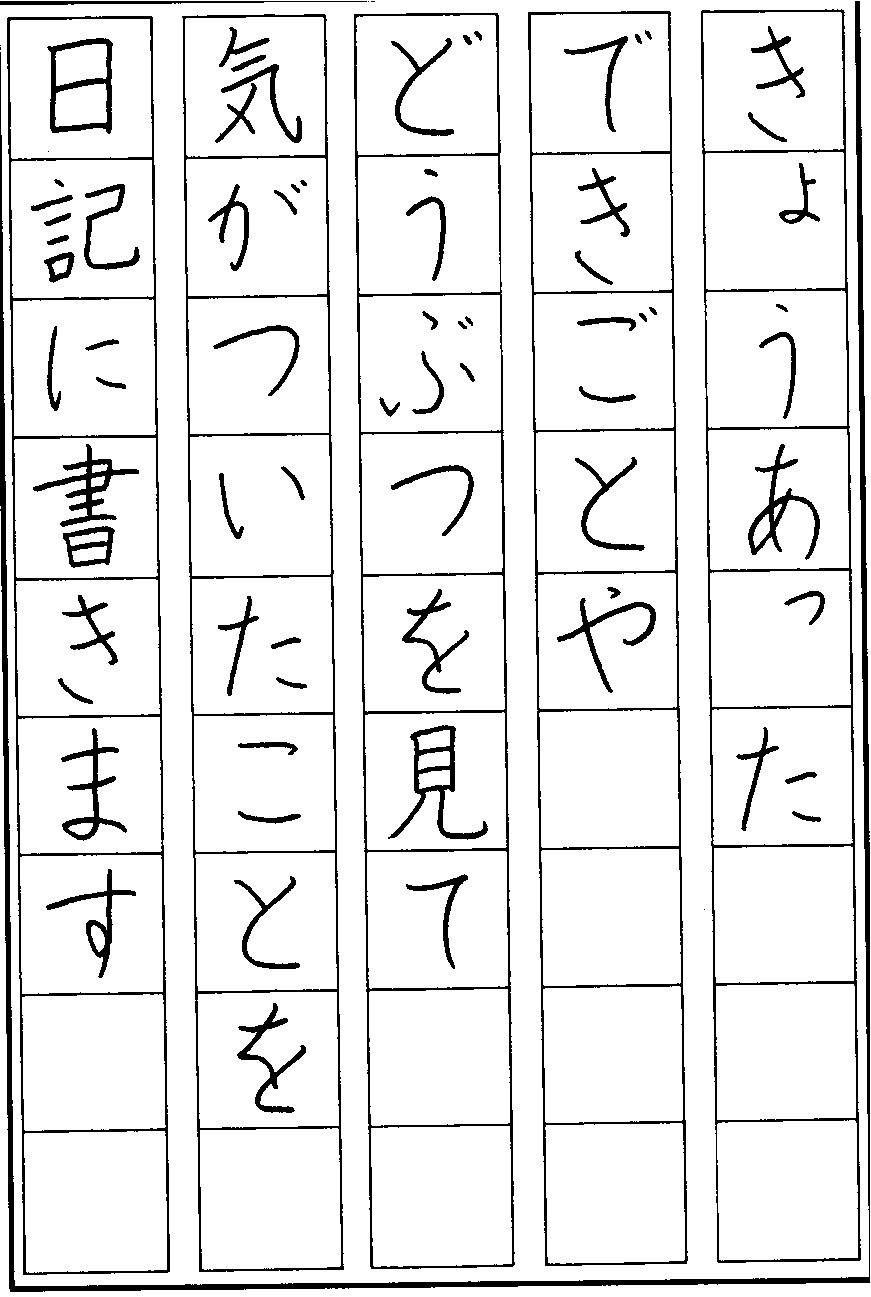 きょうあった
できごとや
どうぶつを見て
気がついたことを
日記に書きます